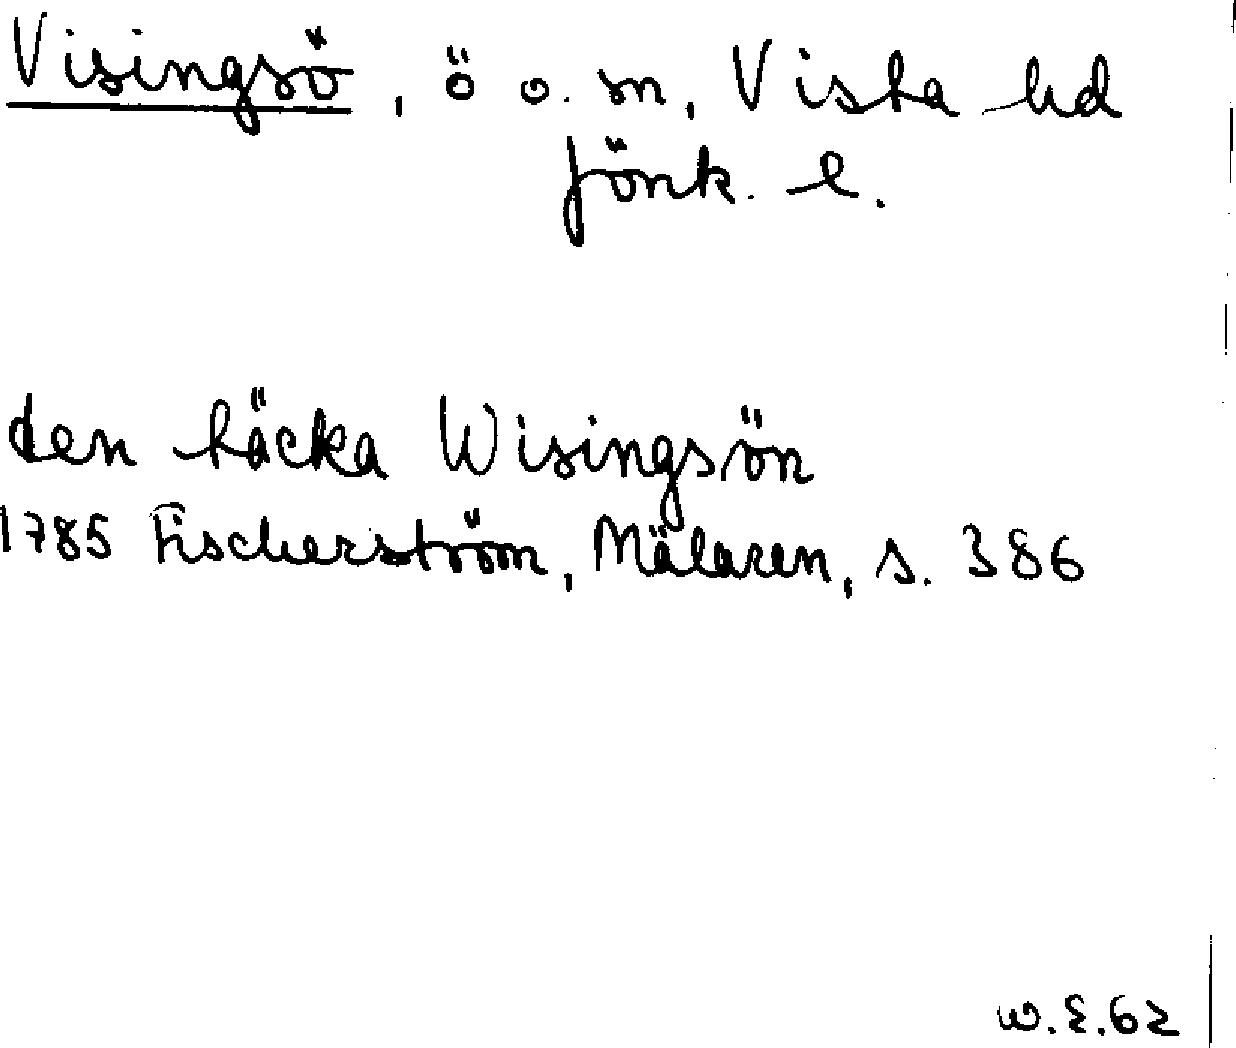 Visingsö, ö o. sn, Vista hd
Jönk. l.
den täcka Wisingsön
1785 Fischerström, Mälaren, s. 386
W.E.62